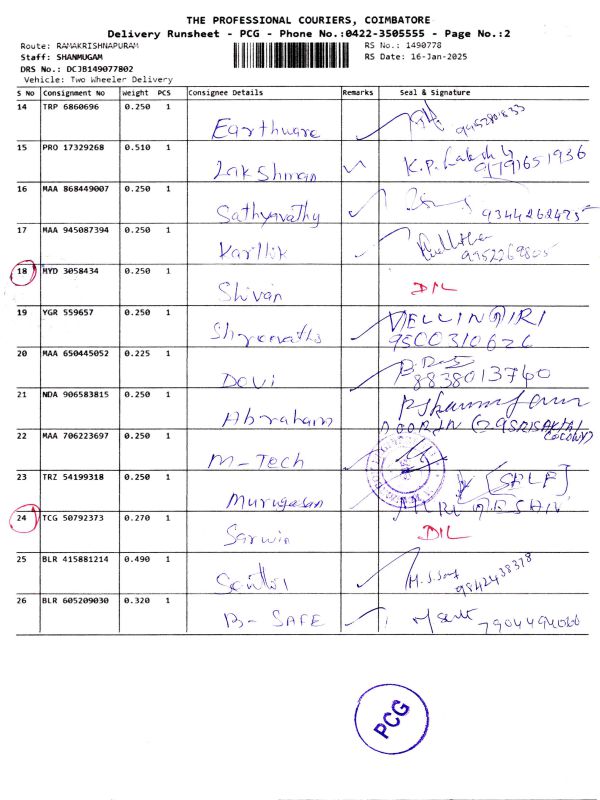 THE PROFESSIONAL COURIERS, COIMBATORE
Delivery Runsheet - PCG - Phone No.:0422-3505555 - Page No.:2
Route: RAMAKRISHNAPURAM
RS No.: 1490778
Staff: SHANMUGAM
RS Date: 16-Jan-2025
DRS No.: DCJB149077802
Vehicle: Two Wheeler Delivery
S No Consignment No Weight PCS Consignee Details Remarks Seal & Signature
14 TRP 6860696 0.250 1
Earthware
15 PRO 17329268 0.510 1
Lakshman K.P. 9791651936
16 MAA 868449007 0.250 1
Sathyavathy 9344262475
17 MAA 945087394 0.250 1
Karthik 9952269805
18 HYD 3058434 0.250 1
Shivan D/L
19 YGR 559657 0.250 1
VELLINGIRI
7500310626
20 MAA 650445052 0.225 1
Devi 8838013740
21 NDA 906583815 0.250 1
Abraham
22 MAA 706223697 0.250 1
M-Tech
23 TRZ 54199318 0.250 1
Murugesan [SELF]
24 TCG 50792373 0.270 1
Sarwin D/L
25 BLR 415881214 0.490 1
9842438378
26 BLR 605209030 0.320 1
B-SAFE
PCG